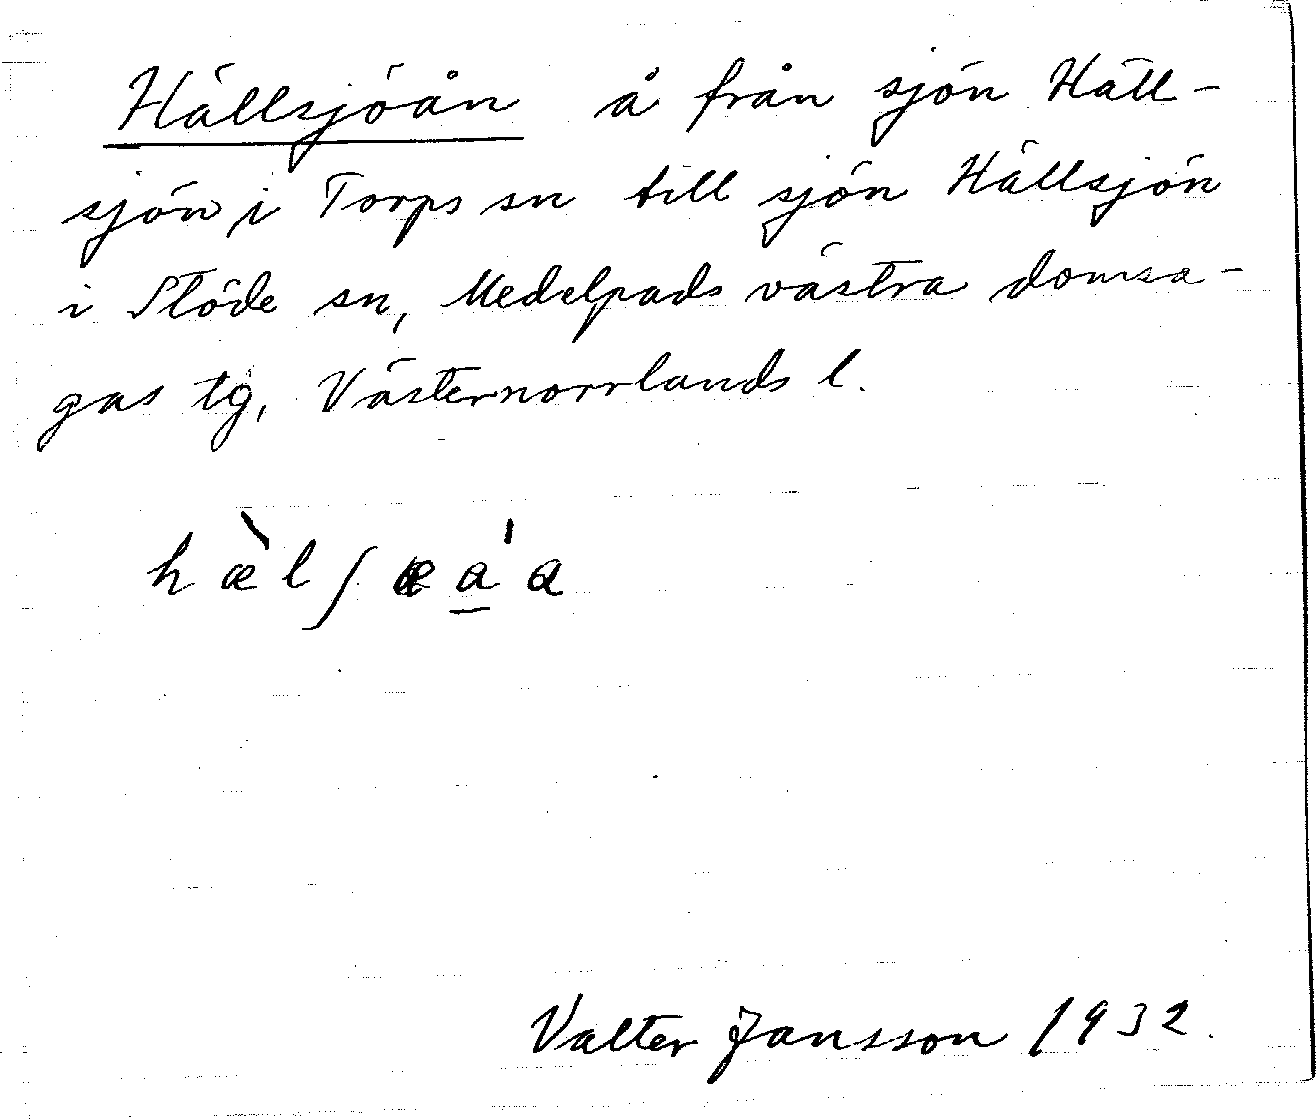 Hällsjöån å från sjön Häll-
sjön i Torps sn till sjön Hällsjön
i Stöde sn, Medelpads västra domsa-
gas tg, Västernorrlands l.
Valter Jansson 1932.